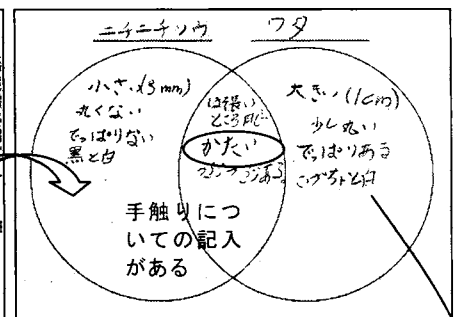 ニチニチソウ
ワタ
小さい(3mm)
丸くない
でっぱりない
黒と白
かたい
大きい(1cm)
少し丸い
でっぱりある
こげ茶と白
手触りにつ
いての記入
がある